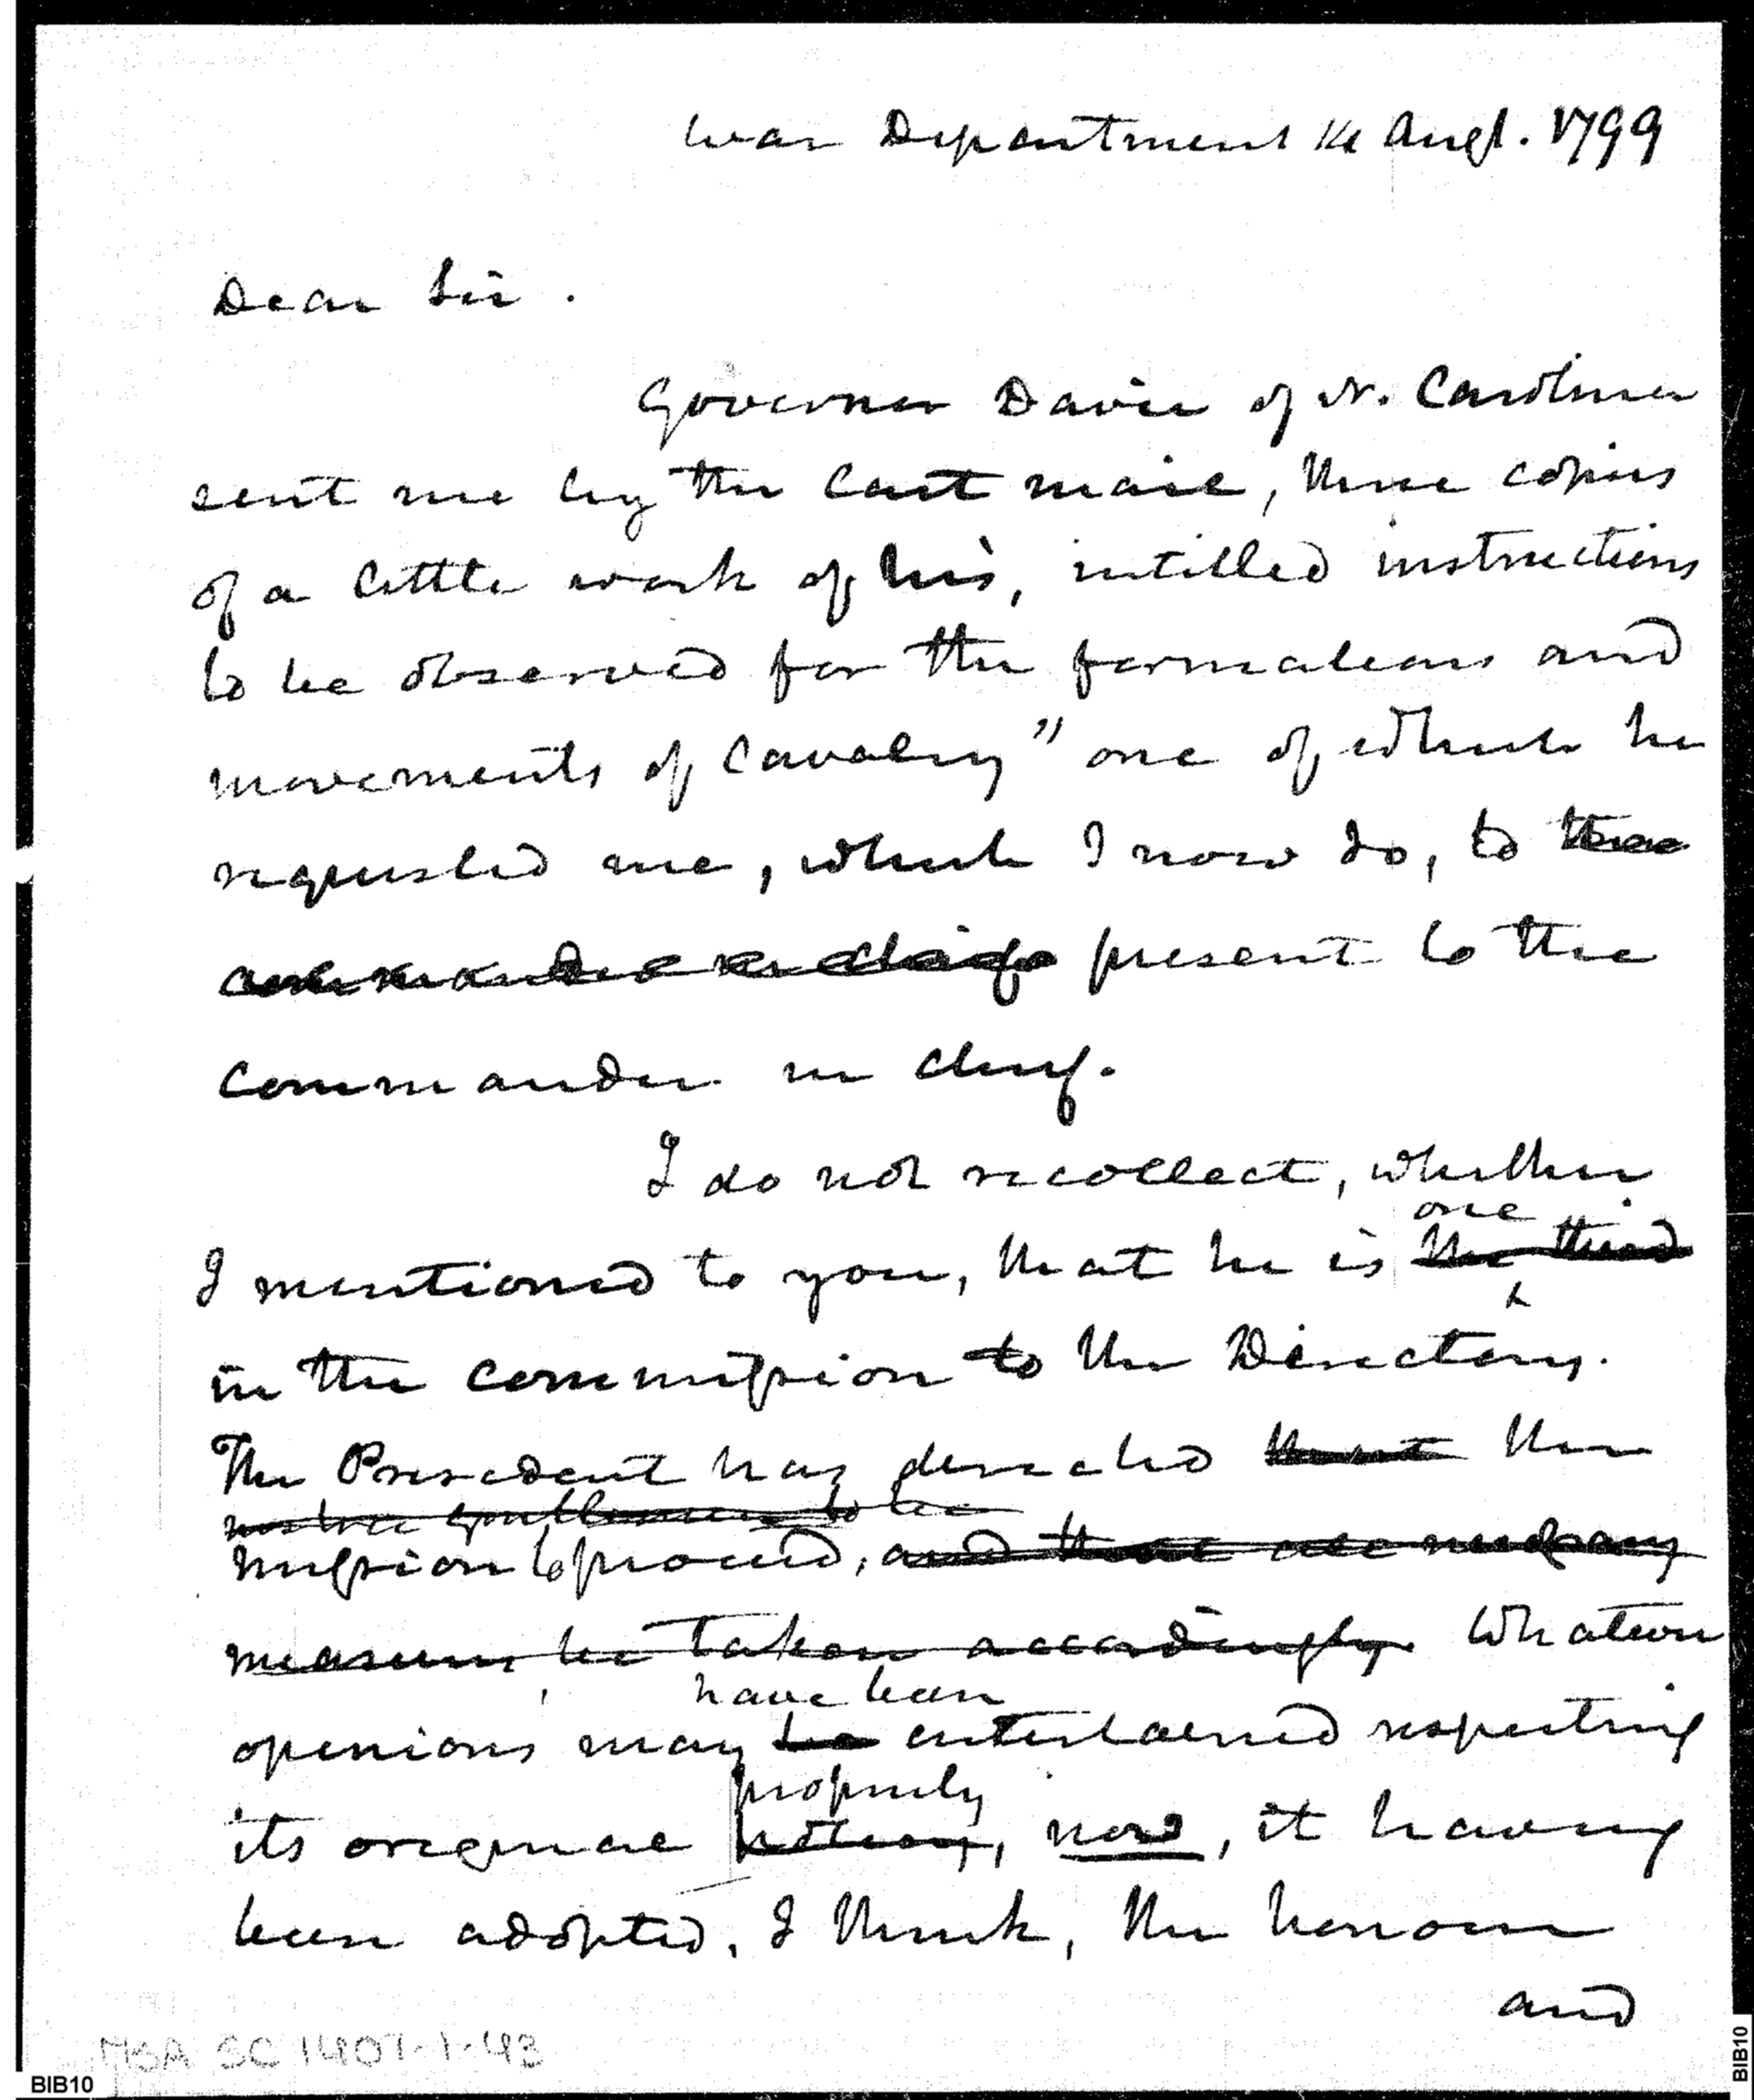 War Department 14 Augt. 1799
Dear Sir.
Governor Davie of N. Carolina
sent me by the last mail, three copies
of a little work of his, intitled instructions
to be observed for the formations and
movements of Cavalry" one of which he
requested me, which I now do, to
commander in chief present to the
commander in chief.
I do not recollect, whether
one
I mentioned to you, that he is the third
in the commission to the Directory.
The President has directed that the
gentlemen to be
mission to proceed, and that all necessary
measures be taken accordingly. Whatever
have been
opinions may be entertained respecting
propriety
its original policy, now, it having
been adopted, I think, the honour
and
MSA SC 1407-1-43
BIB10
BIB10